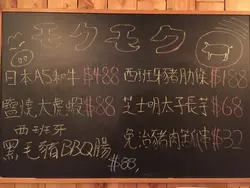 モクモク
日本A5和牛 $488 西班牙豬肋條 $188
鹽燒大虎蝦 $88 芝士明太子長芋 $68
西班牙
黑毛豬BBQ腸 $88, 免治豬肉 串 $32